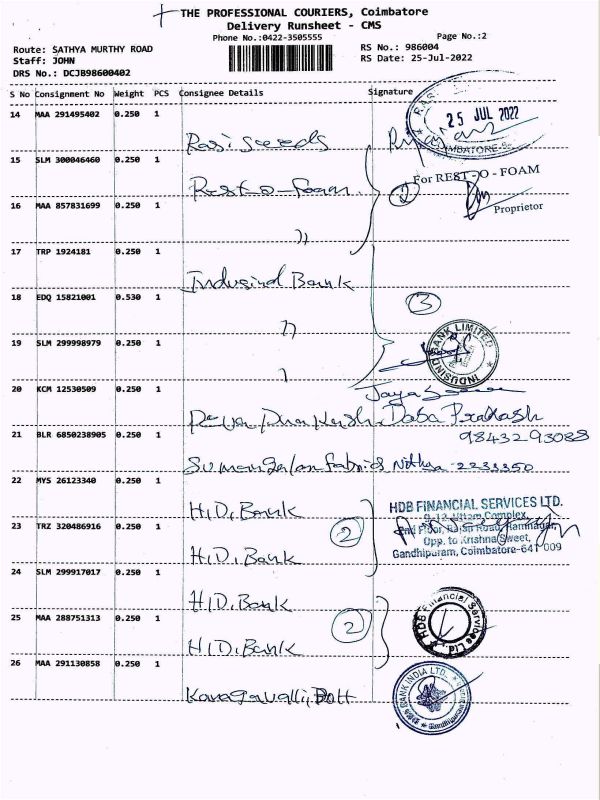 THE PROFESSIONAL COURIERS, Coimbatore
Delivery Runsheet - CMS
Phone No.:0422-3505555
Page No.:2
Route: SATHYA MURTHY ROAD
RS No.: 986004
Staff: JOHN
RS Date: 25-Jul-2022
DRS No.: DCJB98600402
S No Consignment No Weight PCS Consignee Details Signature
14 MAA 291495402 0.250 1
25 JUL 2022
COIMBATORE
Rasi seeds
15 SLM 300046460 0.250 1
For REST-O-FOAM
Rest-o-foam
2
Proprietor
16 MAA 857831699 0.250 1
"
17 TRP 1924181 0.250 1
Indusind Bank
18 EDQ 15821001 0.530 1
3
"
19 SLM 299998979 0.250 1
INDUSIND BANK LIMITED
20 KCM 12530509 0.250 1
Prakash
21 BLR 6850238905 0.250 1
9843293088
Sumangalam Fabrics Nithya 2233350
22 MYS 26123340 0.250 1
H.D.Bank
HDB FINANCIAL SERVICES LTD.
23 TRZ 320486916 0.250 1
2
Opp. to Krishna Sweet,
H.D.Bank
Gandhipuram, Coimbatore-641 009
24 SLM 299917017 0.250 1
H.D.Bank
25 MAA 288751313 0.250 1
2
HDB Financial Services Ltd.
H.D.Bank
26 MAA 291130858 0.250 1
BANK INDIA LTD.